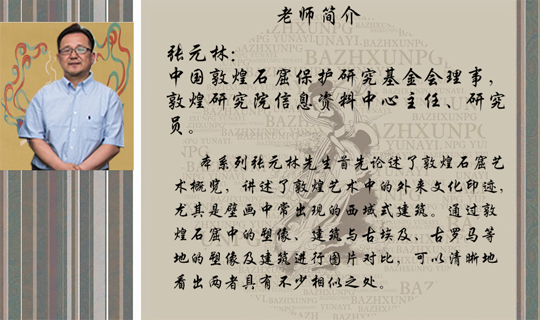 老师简介
张元林：
中国敦煌石窟保护研究基金会理事，
敦煌研究院信息资料中心主任、研究
员。
本系列张元林先生首先论述了敦煌石窟艺
术概览，讲述了敦煌艺术中的外来文化印迹，
尤其是壁画中常出现的西域式建筑。通过敦
煌石窟中的塑像、建筑与古埃及、古罗马等
地的塑像及建筑进行图片对比，可以清晰地
看出两者具有不少相似之处。